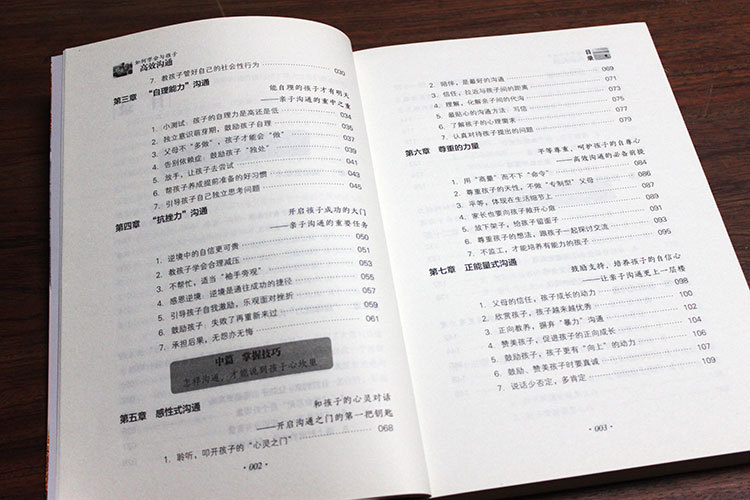 如何学会与孩子
高效沟通
7. 教孩子管好自己的社会性行为 030
第三章 “自理能力”沟通
能自理的孩子才有明天
——亲子沟通的重中之重
1. 小测试：孩子的自理力是高还是低 034
2. 独立意识萌芽期，鼓励孩子自理
3. 父母不“多做”，孩子才能会“做” 037
4. 告别依赖症：鼓励孩子“独处” 039
5. 放手，让孩子去尝试 041
6. 帮孩子养成提前准备的好习惯 043
7. 引导孩子自己独立思考问题 045
第四章 “抗挫力”沟通
开启孩子成功的大门
——亲子沟通的重要任务
1. 逆境中的自信更可贵 050
2. 教孩子学会合理减压 051
3. 不帮忙，适当“袖手旁观” 053
4. 感恩逆境：逆境是通往成功的捷径 055
5. 引导孩子自我激励，乐观面对挫折 057
6. 鼓励孩子：失败了再重新来过 059
7. 承担后果，无怨亦无悔 061
中篇 掌握技巧
怎样沟通，才能说到孩子心坎里
第五章 感性式沟通
和孩子的心灵对话
——开启沟通之门的第一把钥匙
1. 聆听，叩开孩子的“心灵之门” 068
· 002 ·
目
录
2. 陪伴，是最好的沟通 069
3. 信任，拉近与孩子间的距离 071
4. 理解，化解亲子间的代沟 073
5. 最贴心的沟通方法：写信 075
6. 了解孩子的心理需求 077
7. 认真对待孩子提出的问题 079
第六章 尊重的力量
平等尊重，呵护孩子的自尊心
——高效沟通的必备前提
1. 用“商量”而不下“命令” 084
2. 尊重孩子的天性，不做“专制型”父母 086
3. 平等，体现在生活细节上 087
4. 家长也要向孩子敞开心扉 089
5. 放下架子，给孩子留面子 091
6. 尊重孩子的想法，跟孩子一起探讨交流 093
7. 不监工，才能培养有能力的孩子 095
第七章 正能量式沟通
鼓励支持，培养孩子的自信心
——让亲子沟通更上一层楼
1. 父母的信任，孩子成长的动力 098
2. 欣赏孩子，孩子越来越优秀 100
3. 正向教养，摒弃“暴力”沟通 102
4. 赞美孩子，促进孩子的正向成长 104
5. 鼓励孩子，孩子更有“向上”的动力 106
6. 鼓励、赞美孩子时要真诚 108
7. 说话少否定，多肯定 109
· 003 ·